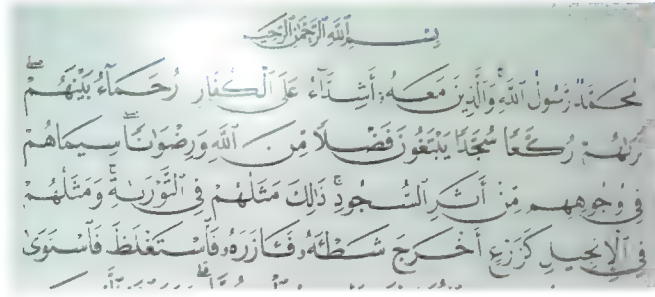 بِسْمِ اللَّهِ الرَّحْمَٰنِ الرَّحِيمِ
مُّحَمَّدٌ رَّسُولُ اللَّهِ وَالَّذِينَ مَعَهُ أَشِدَّاءُ عَلَى الْكُفَّارِ رُحَمَاءُ بَيْنَهُمْ
تَرَاهُمْ رُكَّعًا سُجَّدًا يَبْتَغُونَ فَضْلًا مِّنَ اللَّهِ وَرِضْوَانًا سِيمَاهُمْ
فِي وُجُوهِهِم مِّنْ أَثَرِ السُّجُودِ ذَٰلِكَ مَثَلُهُمْ فِي التَّوْرَىٰةِ وَمَثَلُهُمْ
فِي الْإِنجِيلِ كَزَرْعٍ أَخْرَجَ شَطْئَهُ فَآزَرَهُ فَاسْتَغْلَظَ فَاسْتَوَىٰ